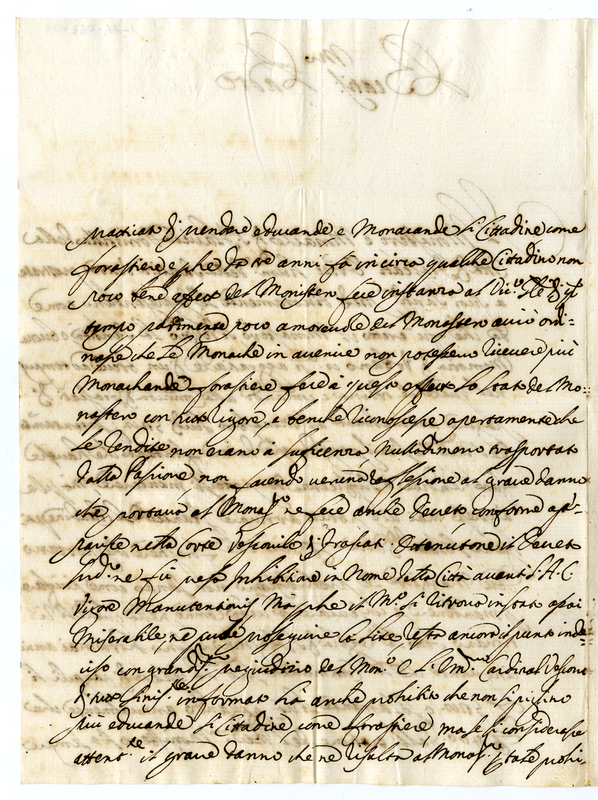 praticato di prendere educande e Monacande si Cittadine come
forastiere e p che da tre anni fà in circa qualche Cittadino non
poco bene affect del Monistero fece instanza al Vic.
tempo parimente poco amorevole del Monastero acciò ordi-
nasse che Le Monache in avenire non potessero ricevere più
Monachande forastiere fece à questo effecto lo stato del Mo-
nastero con tutto rigore, e benche riconoscesse apertamente che
Le rendite non erano à sufficenza nulladimeno trasportato
dalla Passione non facendo veruna reflessione al grave danno
che portava al Monas.ro ne fece anche decreto conforme ap-
parisce nella Corte Vescovile
sud.o ne fù Inhibitione in Nome della Città avanti l'A. C.
vigore Manutentionis Ma p che il M.ro si ritrova in stato assai
Miserabile, ne puole proseguire la lite resta ancora il punto inde-
ciso con grand.mo pregiudizio del Mon.ro e l'Em.mo Cardinal Vescovo
informato hà anche prohibito che non si piglino
più educande si Cittadine come forastiere ma se si considerasse
attent.te il grave danno che ne risulta al Monas.ro p tale prohi-